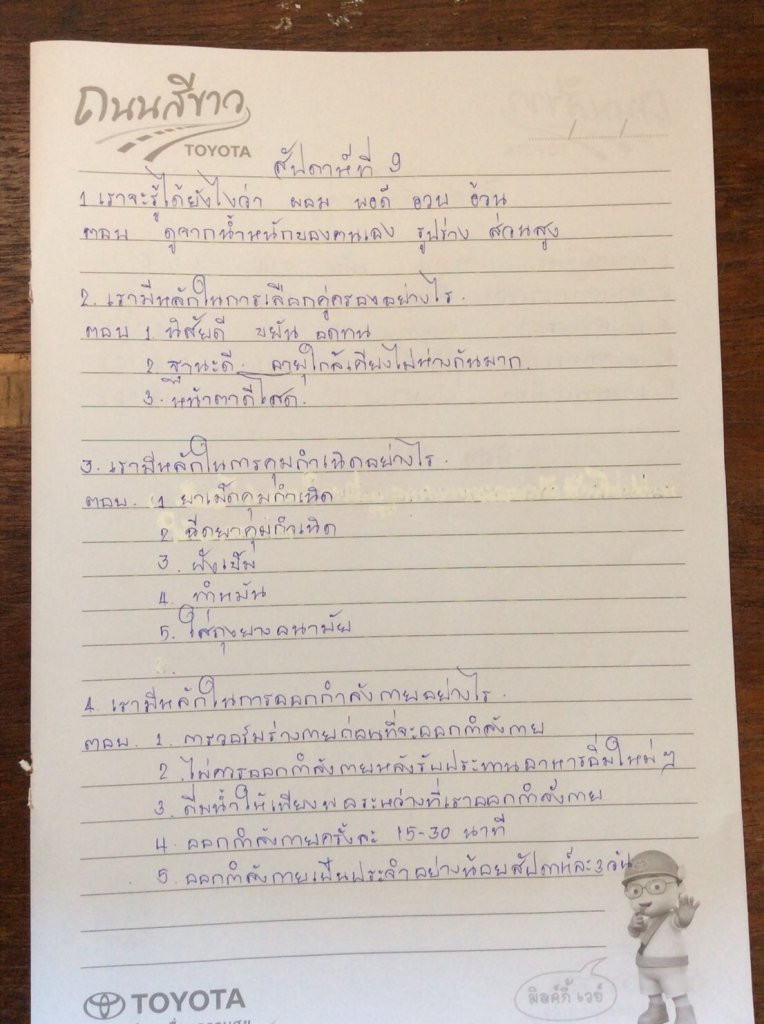 ถนนสีขาว
TOYOTA
สัปดาห์ที่ 9
1 เราจะรู้ได้ยังไงว่า ผอม พอดี อวบ อ้วน
ตอบ ดูจากน้ำหนักของตนเอง รูปร่าง ส่วนสูง
2. เรามีหลักในการเลือกคู่ครองอย่างไร.
ตอบ 1. นิสัยดี ขยัน อดทน
2. ฐานะดี. อายุใกล้เคียงไม่ห่างกันมาก.
3. หน้าตาดี โสด.
3. เรามีหลักในการคุมกำเนิดอย่างไร.
ตอบ. 1 ยาเม็ดคุมกำเนิด
2 ฉีดยาคุมกำเนิด
3. ฝังเข็ม
4. ทำหมัน
5. ใส่ถุงยางอนามัย
4. เรามีหลักในการออกกำลังกายอย่างไร.
ตอบ. 1. การวอร์มร่างกายก่อนที่จะออกกำลังกาย
2. ไม่ควรออกกำลังกายหลังรับประทานอาหารอิ่มใหม่ๆ
3. ดื่มน้ำให้เพียงพอระหว่างที่เราออกกำลังกาย
4. ออกกำลังกายครั้งละ 15-30 นาที
5. ออกกำลังกายเป็นประจำอย่างน้อยสัปดาห์ละ 3 วัน
มิลค์กี้ เวย์
TOYOTA